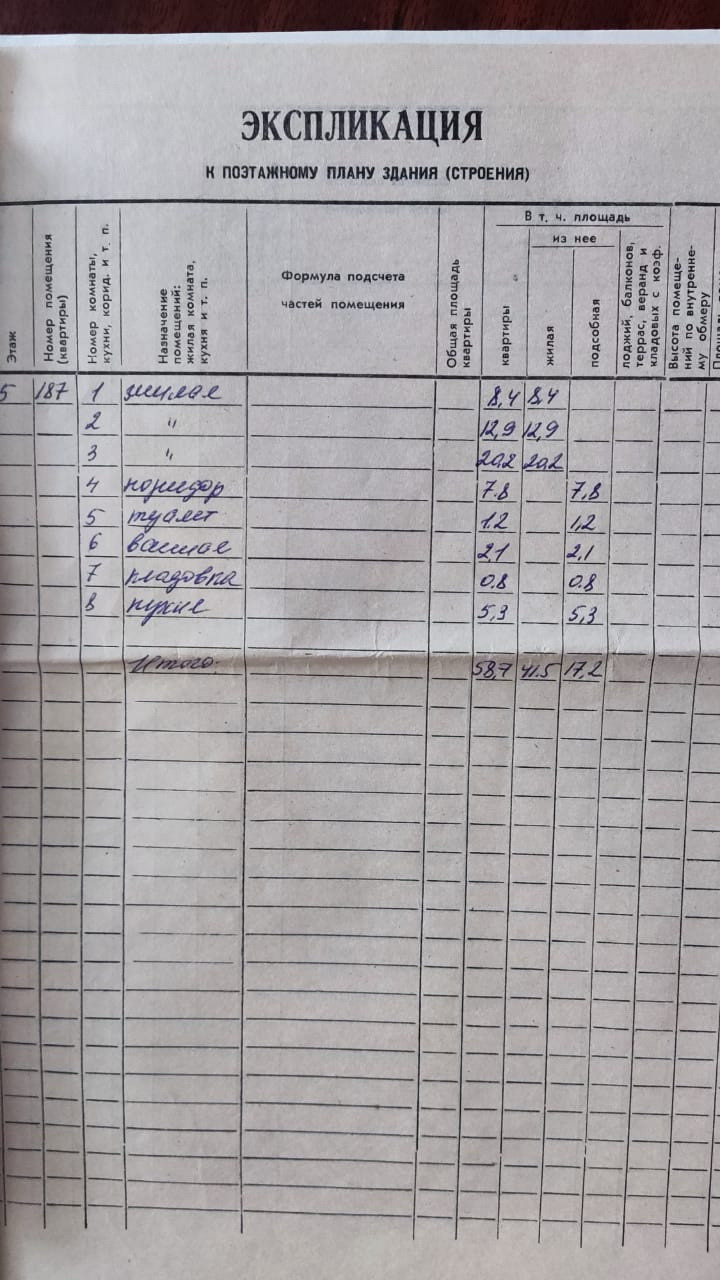 ЭКСПЛИКАЦИЯ
К ПОЭТАЖНОМУ ПЛАНУ ЗДАНИЯ (СТРОЕНИЯ)
Этаж
Номер помещения (квартиры)
Номер комнаты, кухни, корид. и т. п.
Назначение помещений: жилая комната, кухня и т. п.
Формула подсчета
частей помещения
Общая площадь квартиры
В т. ч. площадь
из нее
квартиры
жилая
подсобная
лоджий, балконов, террас, веранд и кладовых с коэф.
Высота помещений по внутреннему обмеру
5 187 1 жилая 8,4 8,4
2 " 12,9 12,9
3 " 20.2 20.2
4 коридор 7.8 7,8
5 туалет 1.2 1,2
6 ванная 2,1 2,1
7 кладовка 0.8 0.8
8 кухня 5,3 5,3
Итого: 58,7 41.5 17,2